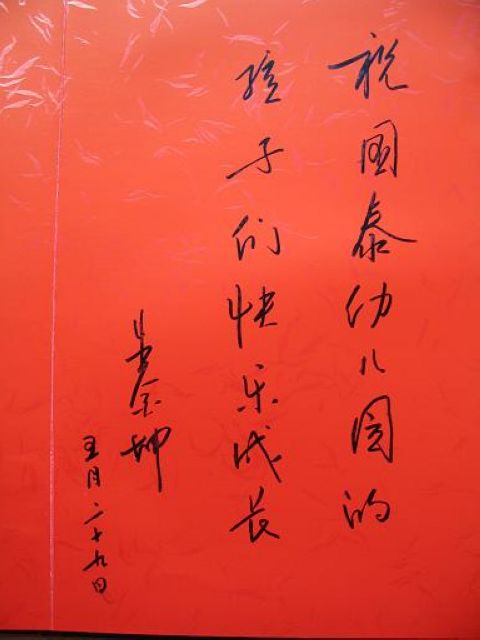 祝国泰幼儿园的
孩子们快乐成长
金坤
五月二十九日